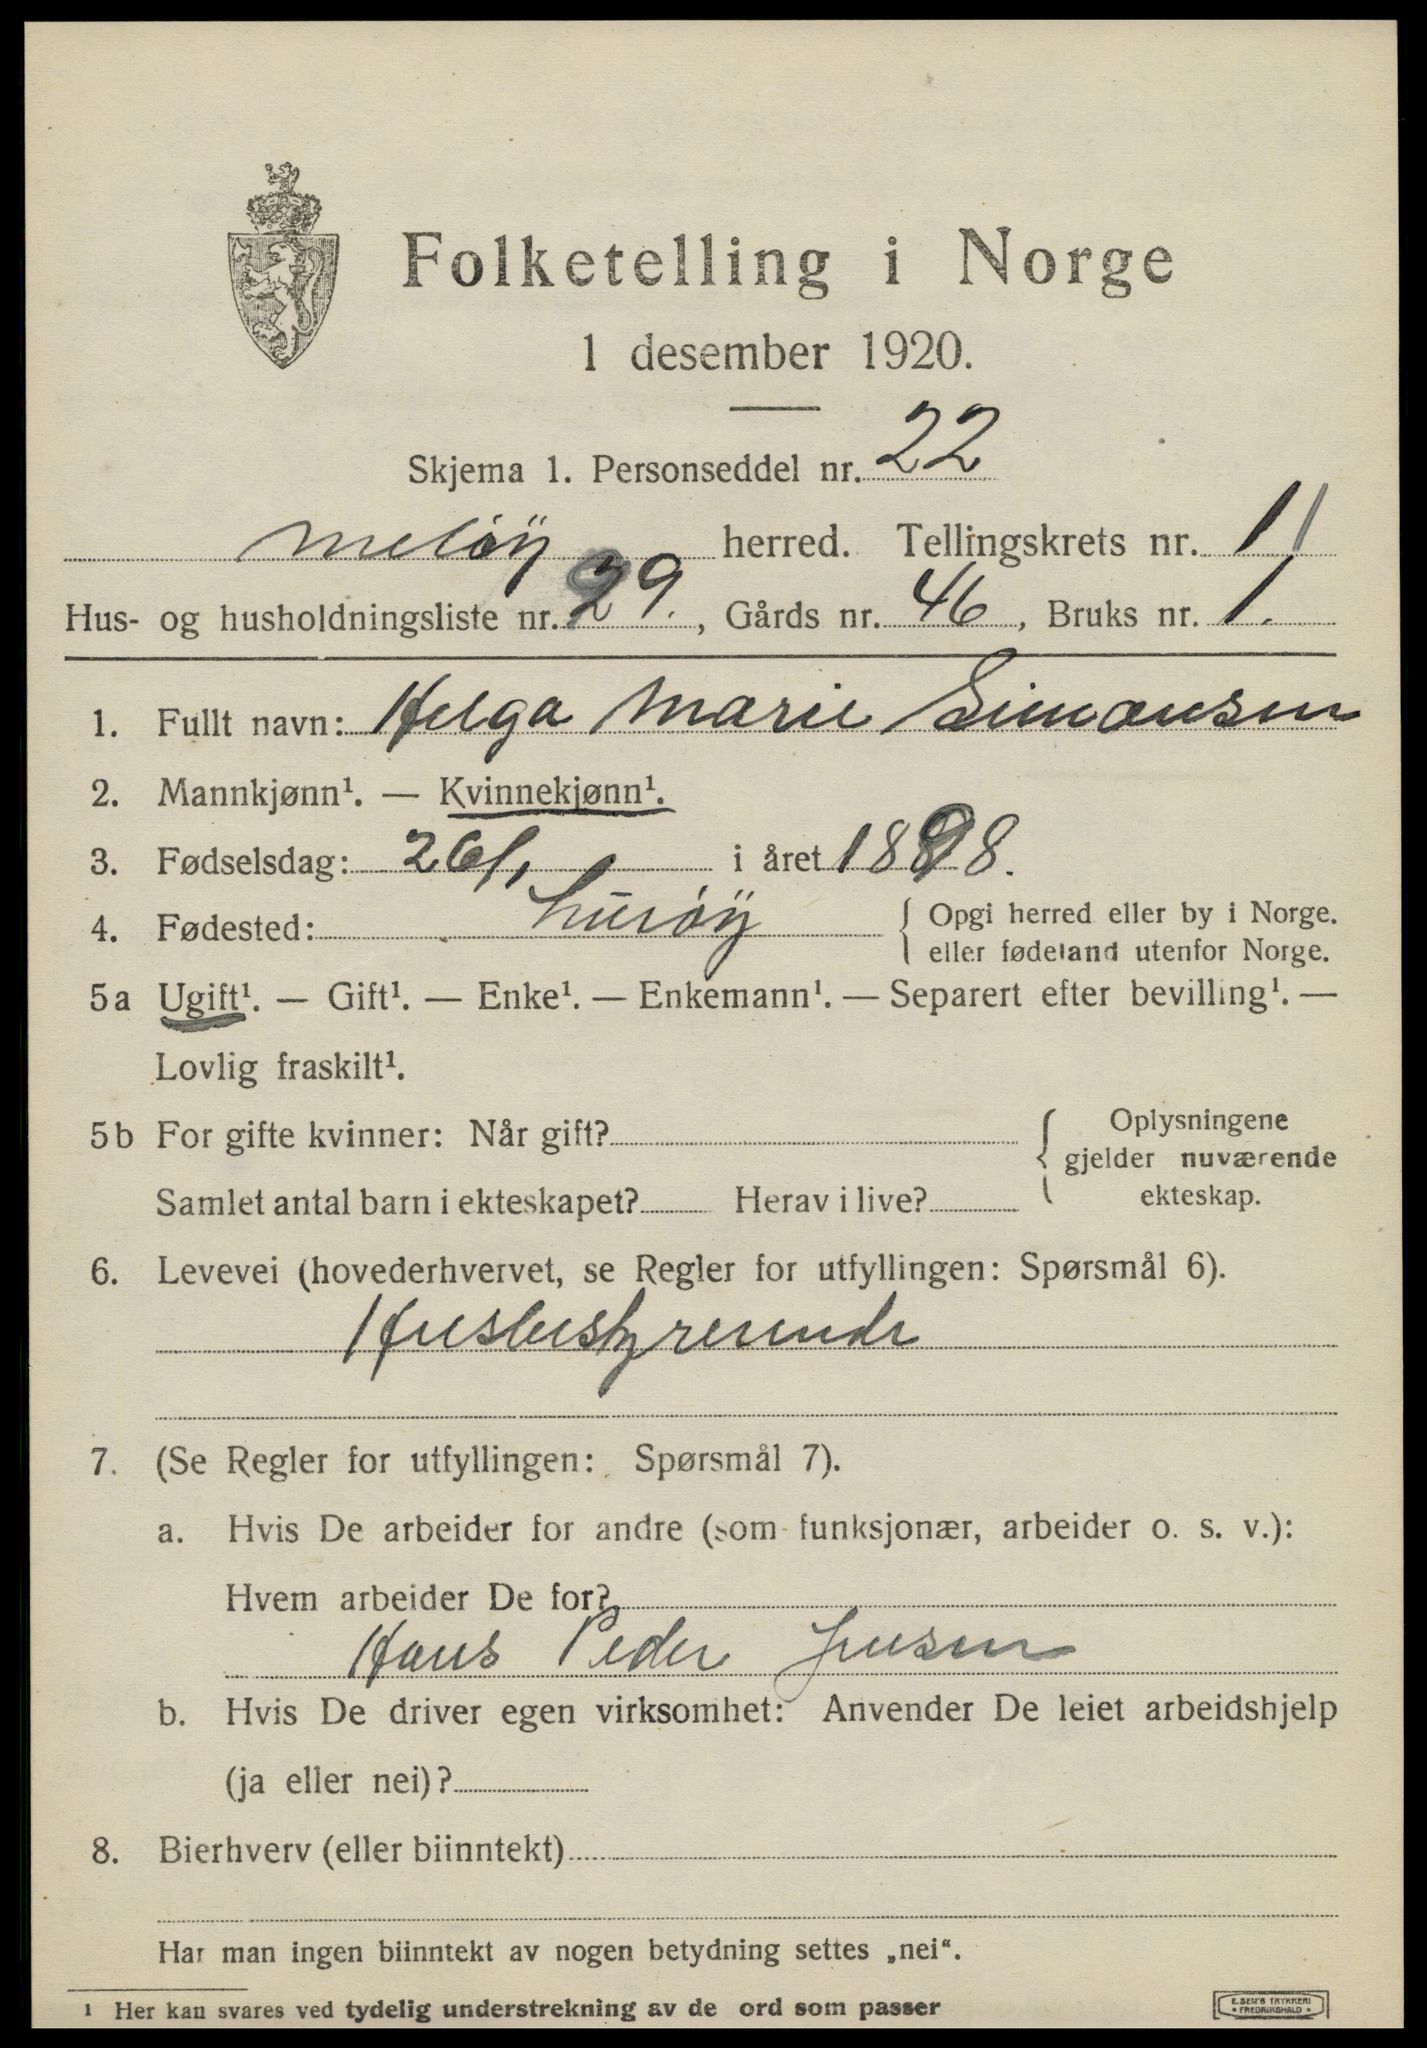 Folketelling i Norge
1 desember 1920.
Skjema 1. Personseddel nr. 22
Meløy herred. Tellingskrets nr. 11
Hus- og husholdningsliste nr. 29., Gårds nr. 46, Bruks nr. 1.
1. Fullt navn: Helga Marie Simonsen
2. Mannkjønn¹. — Kvinnekjønn¹.
3. Fødselsdag: 26/1 i året 1898.
4. Fødested: Lurøy { Opgi herred eller by i Norge.
eller fødeland utenfor Norge.
5a Ugift¹. — Gift¹. — Enke¹. — Enkemann¹. — Separert efter bevilling¹. —
Lovlig fraskilt¹.
5b For gifte kvinner: Når gift? { Oplysningene
gjelder nuværende
Samlet antal barn i ekteskapet? Herav i live? ekteskap.
6. Levevei (hovederhvervet, se Regler for utfyllingen: Spørsmål 6).
Husbestyrerinde
7. (Se Regler for utfyllingen: Spørsmål 7).
a. Hvis De arbeider for andre (som funksjonær, arbeider o. s. v.):
Hvem arbeider De for?
Hans Peder Jensen
b. Hvis De driver egen virksomhet: Anvender De leiet arbeidshjelp
(ja eller nei)?
8. Bierhverv (eller biinntekt)
Har man ingen biinntekt av nogen betydning settes „nei“.
¹ Her kan svares ved tydelig understrekning av de ord som passer
E. SEM'S TRYKKERI
• FREDRIKSHALD •